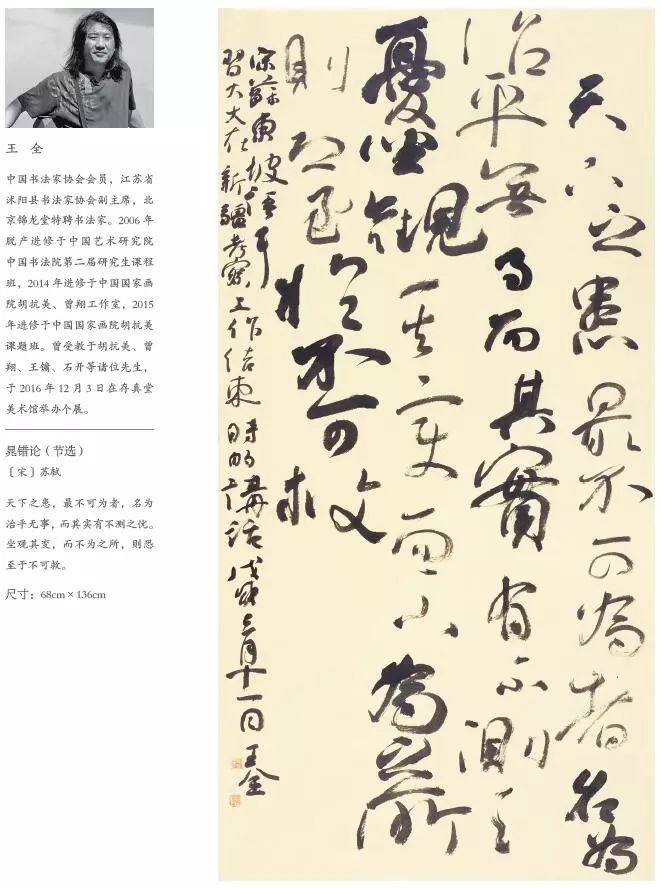 王 全
中国书法家协会会员，江苏省
沭阳县书法家协会副主席，北
京锦龙堂特聘书法家。2006 年
脱产进修于中国艺术研究院
中国书法院第二届研究生课程
班，2014 年进修于中国国家画
院胡抗美、曾翔工作室，2015
年进修于中国国家画院胡抗美
课题班。曾受教于胡抗美、曾
翔、王镛、石开等诸位先生，
于 2016 年 12 月 3 日在存真堂
美术馆举办个展。
晁错论（节选）
〔宋〕苏轼
天下之患，最不可为者，名为
治平无事，而其实有不测之忧。
坐观其变，而不为之所，则恐
至于不可救。
尺寸：68cm×136cm
天下之患最不可為者名為
治平無事而其實有不測之
憂坐觀其變而不為之所
則恐至於不可救
宋蘇東坡語
習大大在新疆考察工作結束時的講話戊戌三月十一日王全